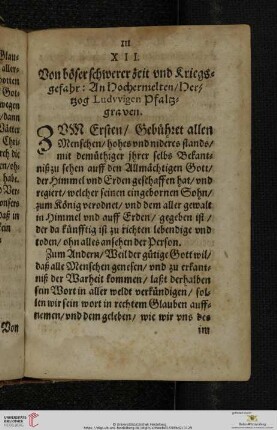 111
XII.
Von böser schwerer zeit vnd Kriegs-
gefahr: An Hochermelten/Her-
tzog Ludvvigen Pfaltz-
graven.
ZVM Ersten/ Gebühret allen
Menschen/hohes vnd nideres stands/
mit demütiger ihrer selbs Bekant-
niß zu sehen auff den Allmächtigen Gott/
der Himmel vnd Erden geschaffen hat/vnd
regiert/welcher seinen eingebornen Sohn/
zum König verodnet/vnd dem aller gewalt
in Himmel vnd auff Erden/ gegeben ist/
der da künfftig ist zu richten lebendige vnd
todten/ohn alles ansehen der Person.
Zum Andern/Weil der gütige Gott wil/
daß alle Menschen genesen/vnd zu erkant-
niß der Warheit kommen/ laßt derhalben
sein Wort in aller weldt verkündigen/ sol-
len wir sein wort in rechtem Glauben auff-
nemen/vnd dem geleben/ wie wir vns des
im
Von
UNIVERSITÄTS-
BIBLIOTHEK
HEIDELBERG